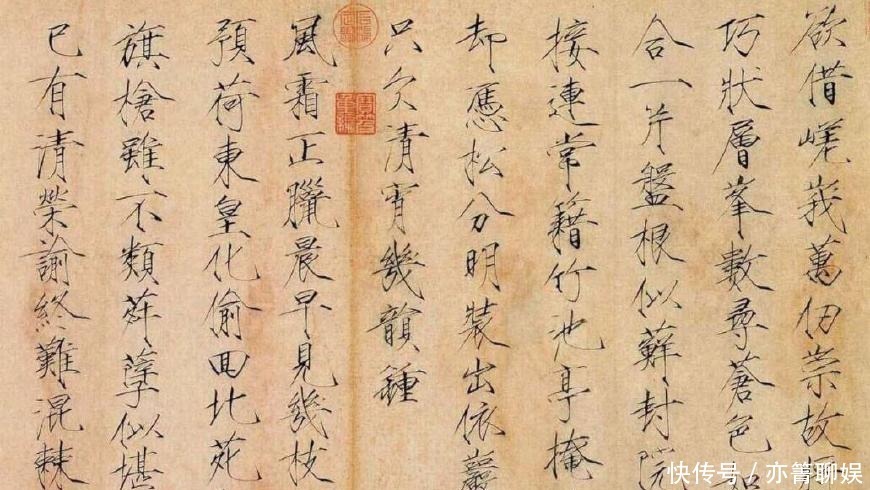 欲借嵯峩萬仞崇故
巧狀層峯數尋蒼色
合一片盤根似蘚封院
接連常籍竹池亭掩
却憑松分明裝出依巖
只欠清宵幾韻鍾
風霜正臘晨早見幾枝
預荷東皇化偷回比苑
旗槍雖不類荈孽似堪
已有清榮諭終難混棘
快传号／亦箐聊娱